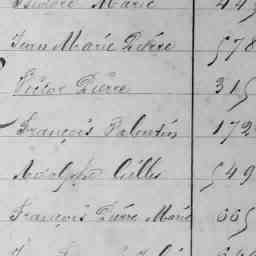 Isidore Marie 445
Jean Marie Pierre 578
Victor Pierre 315
François Valentin 172
Adolphe Gilles 549
François Pierre Marie 665